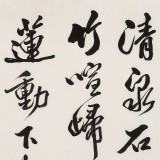 清泉石
竹喧歸
蓮動下